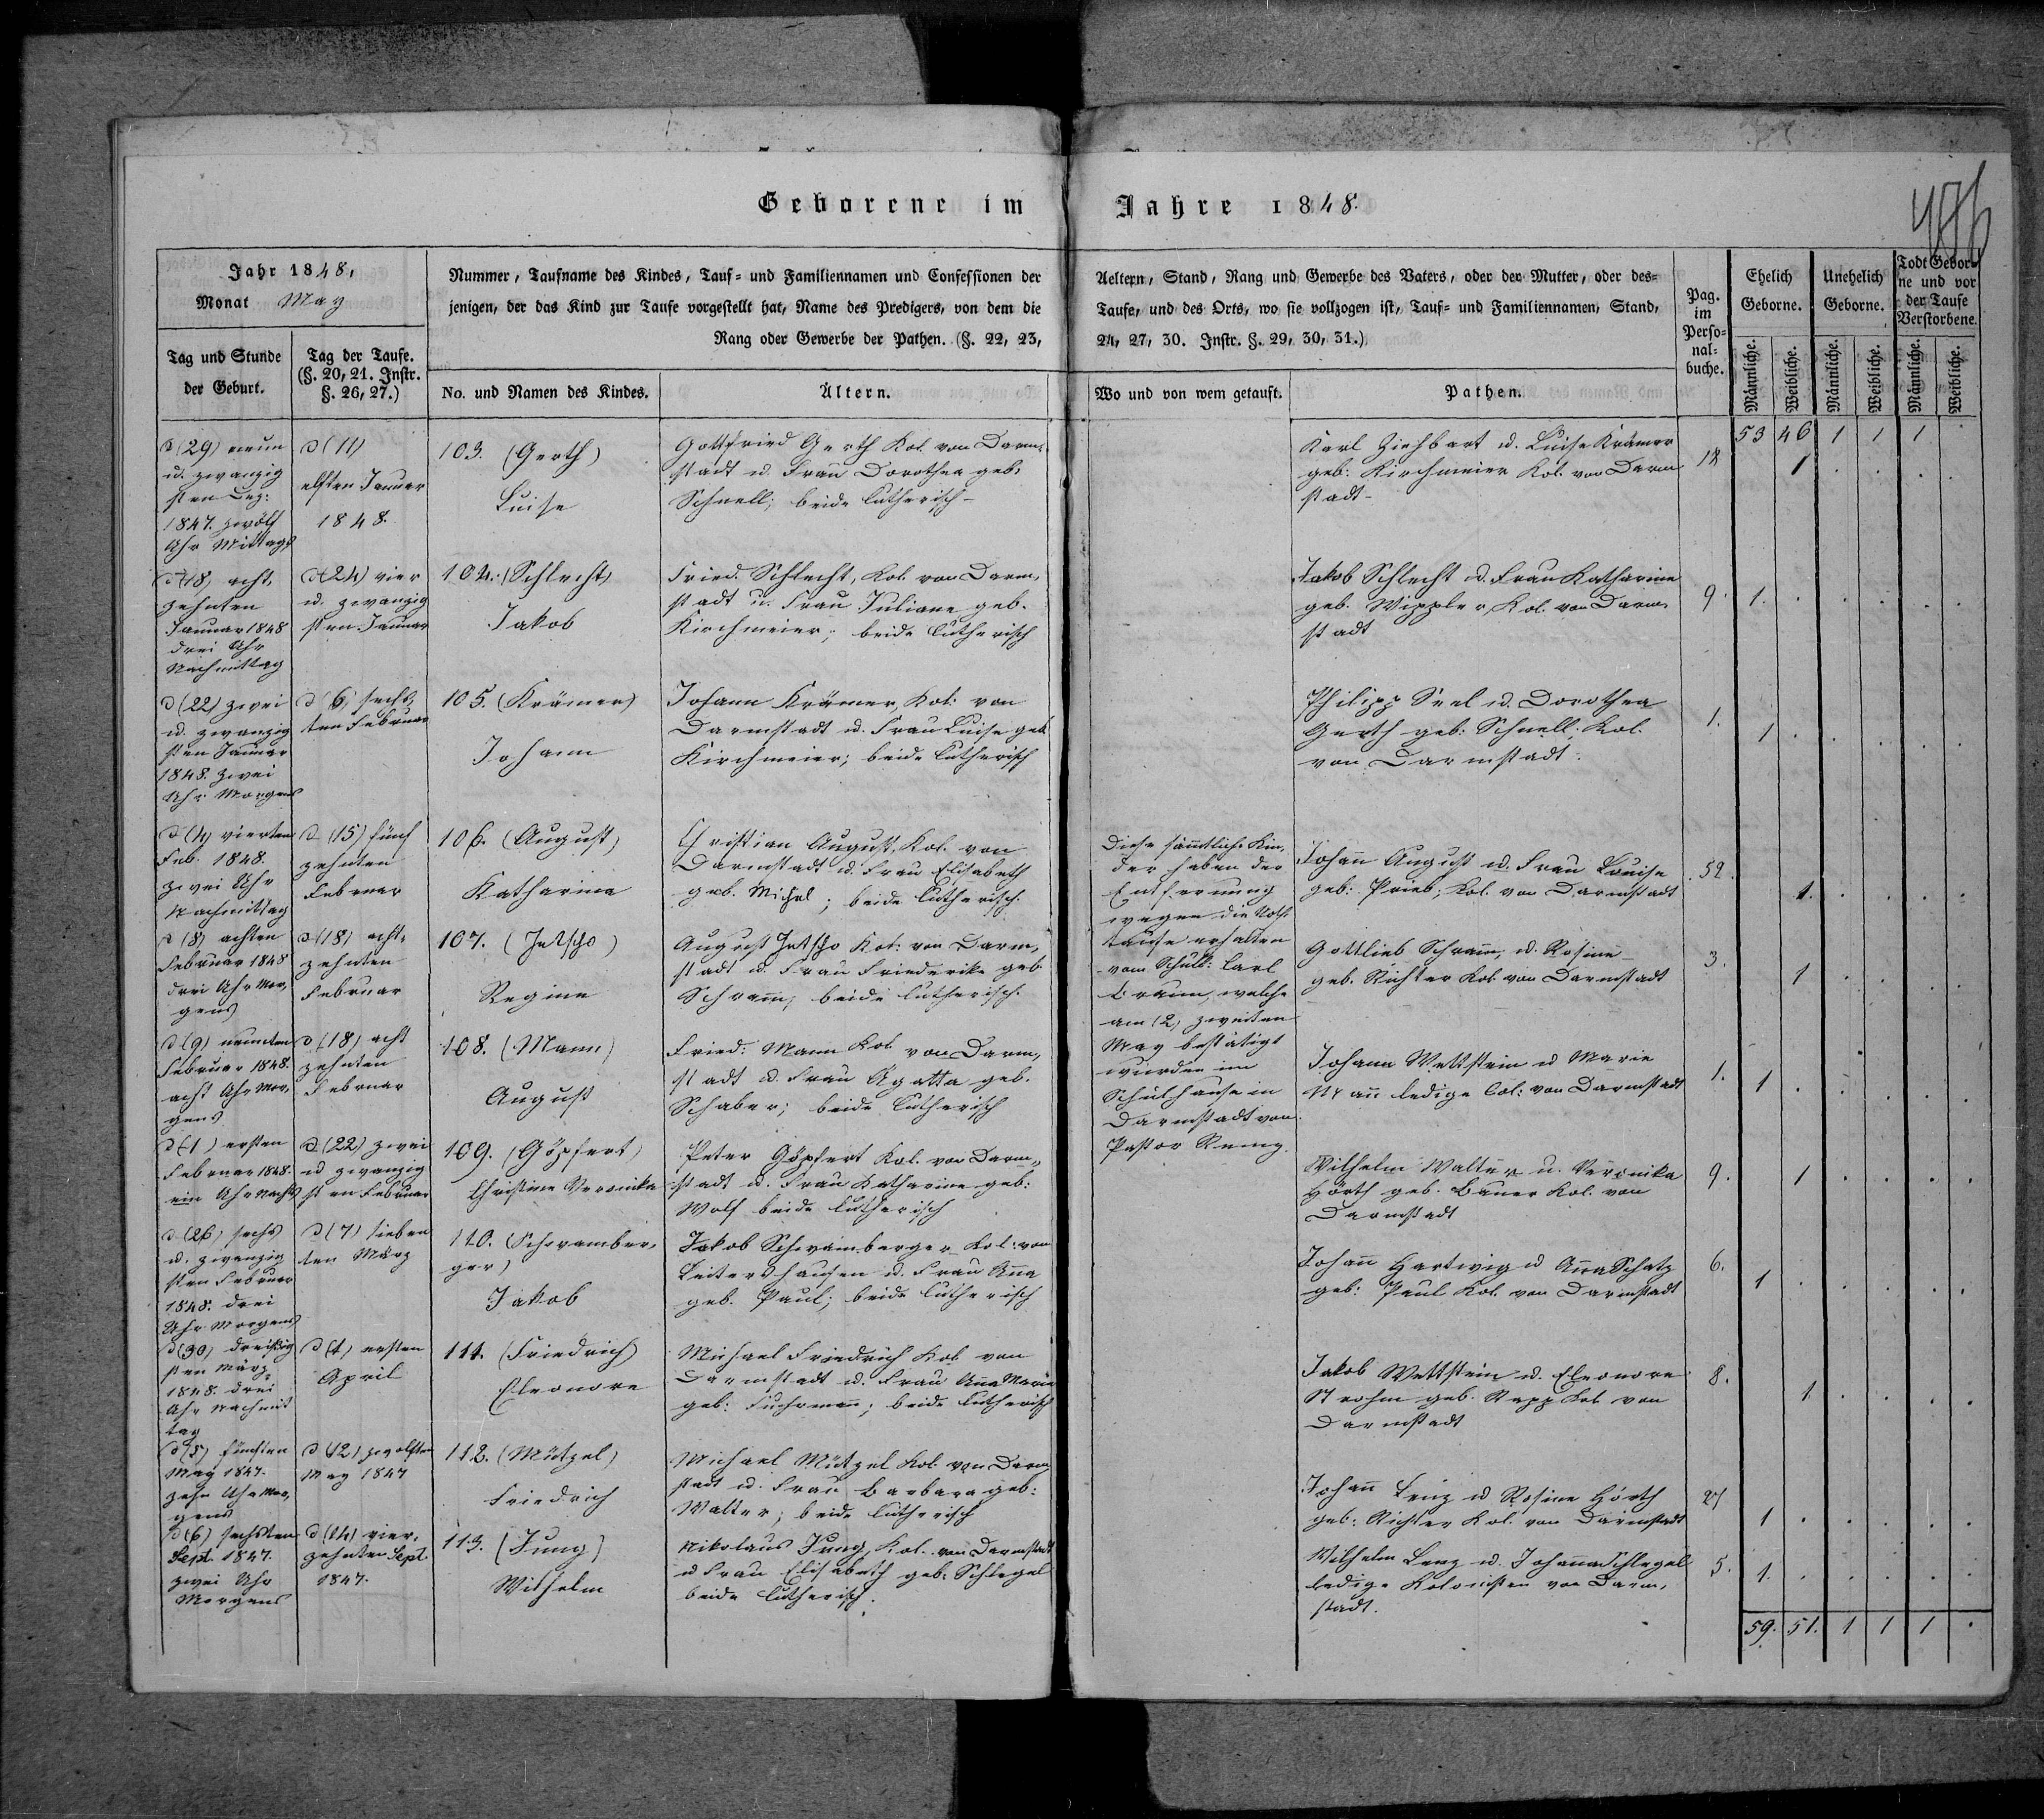 Geborene im Jahre 1848.
486
Jahr 1848,
Monat May
Nummer, Taufname des Kindes, Tauf- und Familiennamen und Confessionen der
jenigen, der das Kind zur Taufe vorgestellt hat, Name des Predigers, von dem die
Rang oder Gewerbe der Pathen. (§. 22, 23,
Aeltern, Stand, Rang und Gewerbe des Vaters, oder der Mutter, oder des-
Taufe, und des Orts, wo sie vollzogen ist, Tauf- und Familiennamen, Stand,
24, 27, 30. Instr. §. 29, 30, 31.)
Tag und Stunde
der Geburt.
Tag der Taufe.
(§. 20, 21. Instr.
§. 26, 27.)
No. und Namen des Kindes.
Ältern.
Wo und von wem getauft.
Pathen.
Pag.
im
Perso-
nal-
buche.
Ehelich
Geborne.
Unehelich
Geborne.
Todt Gebor-
ne und vor
der Taufe
Verstorbene.
Männliche.
Weibliche.
Männliche.
Weibliche.
Männliche.
Weibliche.
53 46 1 1 1 .
d (29) neun
u. zwanzig
sten Dez:
1847. zwölf
Uhr Mittags
d (11)
elften Januar
1848.
103. (Gerth)
Luise
Gottfried Gerth Kol. von Darm-
stadt u. Frau Dorothea geb.
Schnell; beide lutherisch
Karl Ziehbart u. Luise Krämer
geb. Kirchmeier Kol. von Darm
stadt
12
1
d (18) acht
zehnten
Januar 1848
drei Uhr
Nachmittag
d (24) vier
u. zwanzig
sten Januar
104. (Schlecht)
Jakob
Fried. Schlecht, Kol. von Darm-
stadt u. Frau Juliane geb.
Kirchmeier; beide lutherisch
Jakob Schlecht u. Frau Katharina
geb. Wippler, Kol. von Darm-
stadt
9.
1.
d (22) zwei
u. zwanzig
sten Januar
1848. zwei
Uhr Morgens
d (6) sechs-
ten Februar
105. (Krämer)
Johann
Johann Krämer, Kol: von
Darmstadt u. Frau Luise geb
Kirchmeier; beide lutherisch
Philipp Seel u. Dorothea
Gerth geb: Schnell; Kol.
von Darmstadt.
1.
1
d (4) vierten
Feb. 1848.
zwei Uhr
Nachmittag
d (15) fünf
zehnten
Februar
106. (August)
Katharina
Christian August, Kol. von
Darmstadt u. Frau Elisabeth
geb. Michel; beide lutherisch.
Diese sämtliche Kin-
der haben der
Entfernung
wegen die Noth
taufe erhalten
vom Schull: Carl
Braun, welche
am (2) zweiten
May bestätigt
wurden im
Schulhause in
Darmstadt von
Pastor Remy.
Johann August u. Frau Louise
geb: Prieb; Kol. von Darmstadt
52.
1.
d (8) achten
Februar 1848
drei Uhr Mor-
gens
d (18) acht-
zehnten
Februar
107. (Jetscho)
Regine
August Jetscho Kol: von Darm-
stadt u. Frau Friederike geb
Schramm; beide lutherisch.
Gottlieb Schramm u. Rosine
geb. Richter Kol. von Darmstadt
3.
1
d (9) neunten
Februar 1848.
acht Uhr Mor-
gens
d (18) acht
zehnten
Februar
108. (Mann)
August
Fried: Mann Kol. von Darm-
stadt u. Frau Agatta geb.
Schaber; beide lutherisch
Johann Wettstein u Marie
Mann ledige Col: von Darmstadt
1.
1
d (1) ersten
Februar 1848.
ein Uhr Nachts
d (22) zwei
u zwanzig
sten Februar
109. (Göpfert)
Christine Veronika
Peter Göpfert Kol. von Darm-
stadt u. Frau Katharine geb:
Wolf beide lutherisch
Wilhelm Walter u. Veronika
Hörth geb. Bauer Kol. von
Darmstadt
9.
1
d (26) sechs
u. zwanzig
sten Februar
1848. drei
Uhr Morgens
d (7) sieben
ten März
110. (Schwamber-
ger)
Jakob
Jakob Schwamberger Kol: von
Leitershausen u. Frau Anna
geb. Paul; beide lutherisch
Johann Hartwig u Anna Schatz
geb: Paul Kol. von Darmstadt
6.
1
d (30) dreißig
sten März
1848. drei
Uhr Nachmit
tag
d (1) ersten
April
111. (Friedrich)
Eleonore
Michael Friedrich Kol von
Darmstadt u. Frau Anna Maria
geb: Fuhrmann; beide lutherisch
Jakob Wettstein u. Eleonore
Strohm geb. Rapp Kol von
Darmstadt
8.
1.
d (5) fünften
May 1847.
zehn Uhr Mor-
gens
d (12) zwölften
May 1847
112. (Mützel)
Friedrich
Michael Mützel Kol. von Darm
stadt u. Frau Barbara geb:
Walter; beide lutherisch
Johann Lenz u Rosine Hörth
geb: Richter Kol. von Darmstadt
27
1
d (6) sechsten
Sept. 1847.
zwei Uhr
Morgens
d (14) vier-
zehnten Sept
1847.
113. (Jung)
Wilhelm
Nikolaus Jung, Kol. von Darmstadt
u Frau Elisabeth geb. Schlegel
beide lutherisch.
Wilhelm Lenz u. Johanna Schlegel
ledige Kolonisten von Darm-
stadt.
5.
1.
59. 51. 1 1 1 .